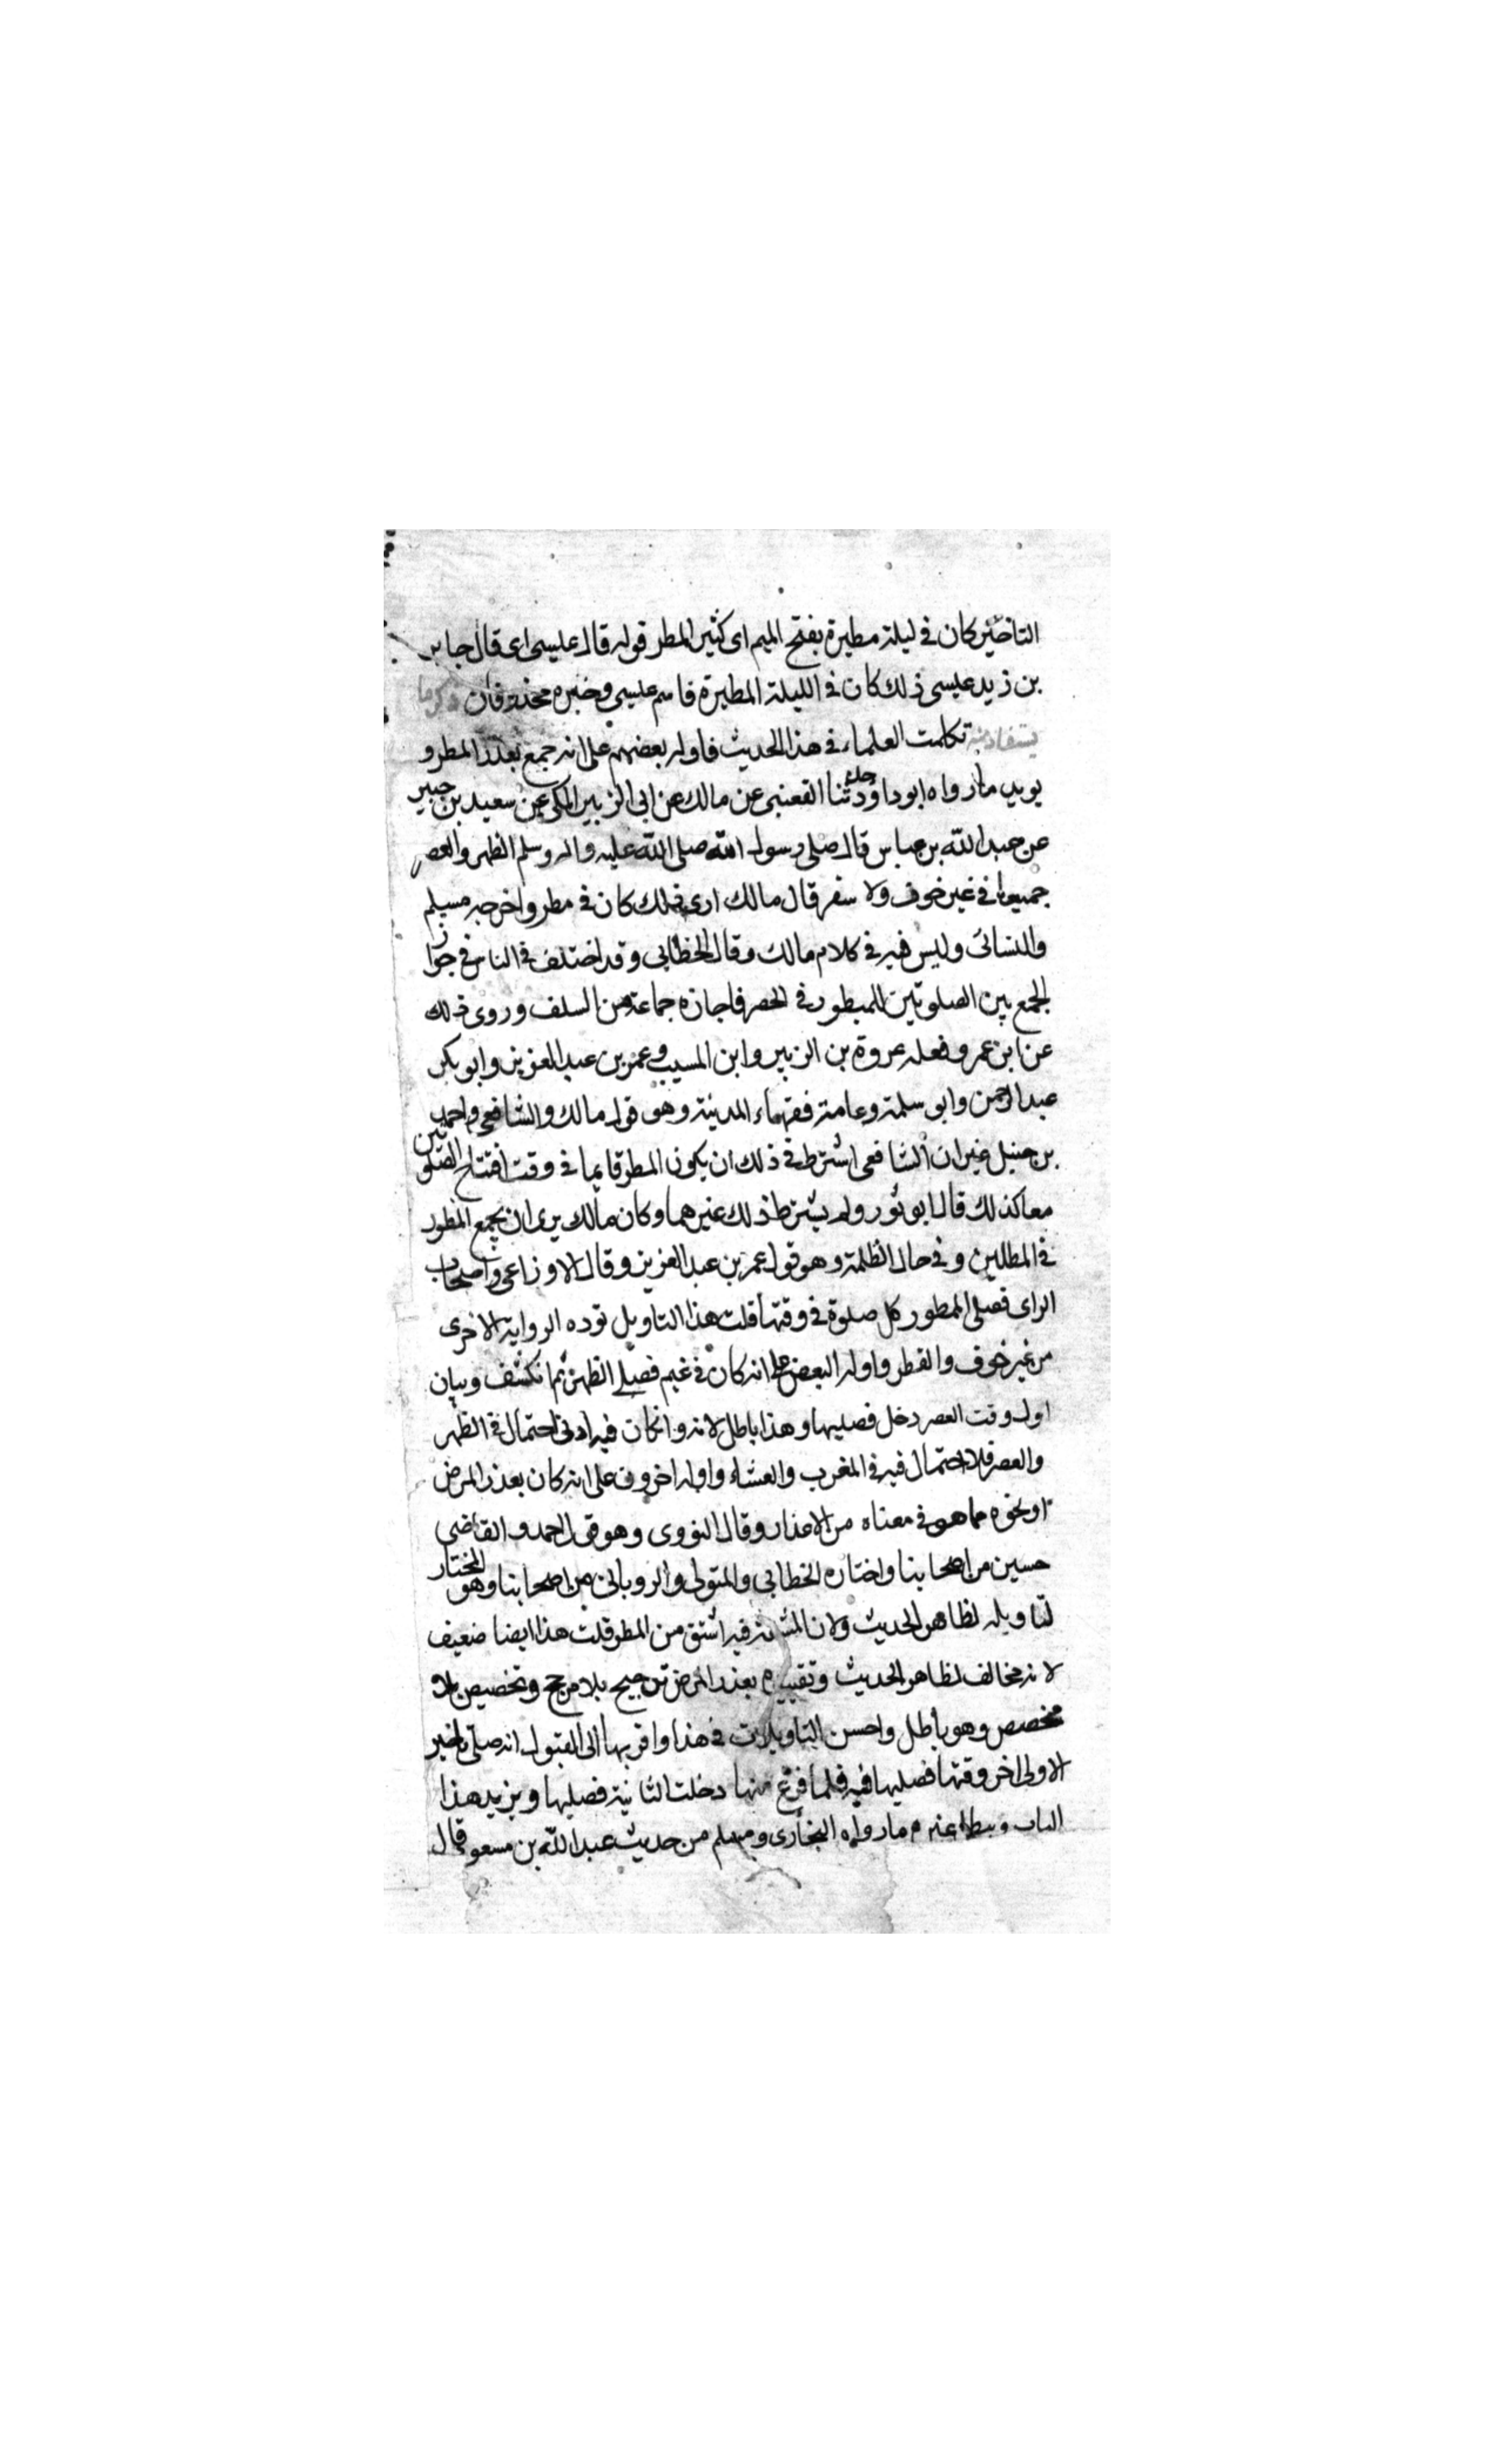 التاخير كان في ليلة مطيرة بفتح الميم اى كثير المطر قوله قال عسى اى قال جابر
بن زيد عيسى ذلك كان في الليلة المطيرة فاسم عيسى وخبره محذوفان ذكر ما
يستفاد منه تكلمت العلماء في هذا الحديث فاوله بعضهم على انه جمع بعذر المطر و
يويد ما رواه ابو داود حدثنا القعنبى عن مالك عن ابى الزبير المكى عن سعيد بن جبير
عن عبد الله بن عباس قال صلى رسول الله صلى الله عليه واله وسلم الظهر والعصر
جميعا في غير خوف ولا سفر قال مالك ارى ذلك كان في مطر واخرجه مسلم
والنسائى وليس فيه في كلام مالك وقال الخطابى وقد اختلف في الناس في جواز
الجمع بين الصلوتين للممطور في الحضر فاجازه جماعة من السلف وروى ذلك
عن ابن عمر وفعله عروة بن الزبير وابن المسيب وعمر بن عبد العزيز وابو بكر
عبد الرحمن وابو سلمة وعامة فقهاء المدينة وهو قول مالك والشافعى واحمد
بن حنبل غير ان الشافعى اشترط في ذلك ان يكون المطر قايما في وقت افتتاح الصلوتين
معا كذلك قال ابو ثور ولم يشترط ذلك غيرهما وكان مالك يرى ان يجمع الممطور
في المطلين وفي حال الظلمة وهو قول عمر بن عبد العزيز وقال الاوزاعى واصحاب
الراى فصلى الممطور كل صلوة في وقتها قلت هذا التاويل توده الرواية الاخرى
من غير خوف والمطر واوله البعض على انه كان في غيم فصلى الظهر ثم انكشف وبان
اول وقت العصر دخل فصليها وهذا باطل لانه وانكان فيه ادنى احتمال في الظهر
والعصر فلا احتمال فيه في المغرب والعشاء واوله اخرون على انه كان بعذر المرض
او نحوه مما هو في معناه من الاعذار وقال النووى وهو قول احمد والقاضى
حسين من اصحابنا واختاره الخطابى والمتولى والرويانى من اصحابنا وهو المختار
لتاويله لظاهر الحديث ولان المشقة فيه اشق من المطر قلت هذا ايضا ضعيف
لانه مخالف لظاهر الحديث وتقييده بعذر المرض ترجيح بلا مرجح وتخصيص بلا
مخصص وهو باطل واحسن التاويلات في هذا واقربها الى القبول انه صلى تاخير
الاولى اخر وقتها فصليها فيه فلما فرغ منها دخلت الثانية فصليها ويزيد هذا
الباب ما رواه البخارى ومسلم من حديث عبد الله بن مسعود قال